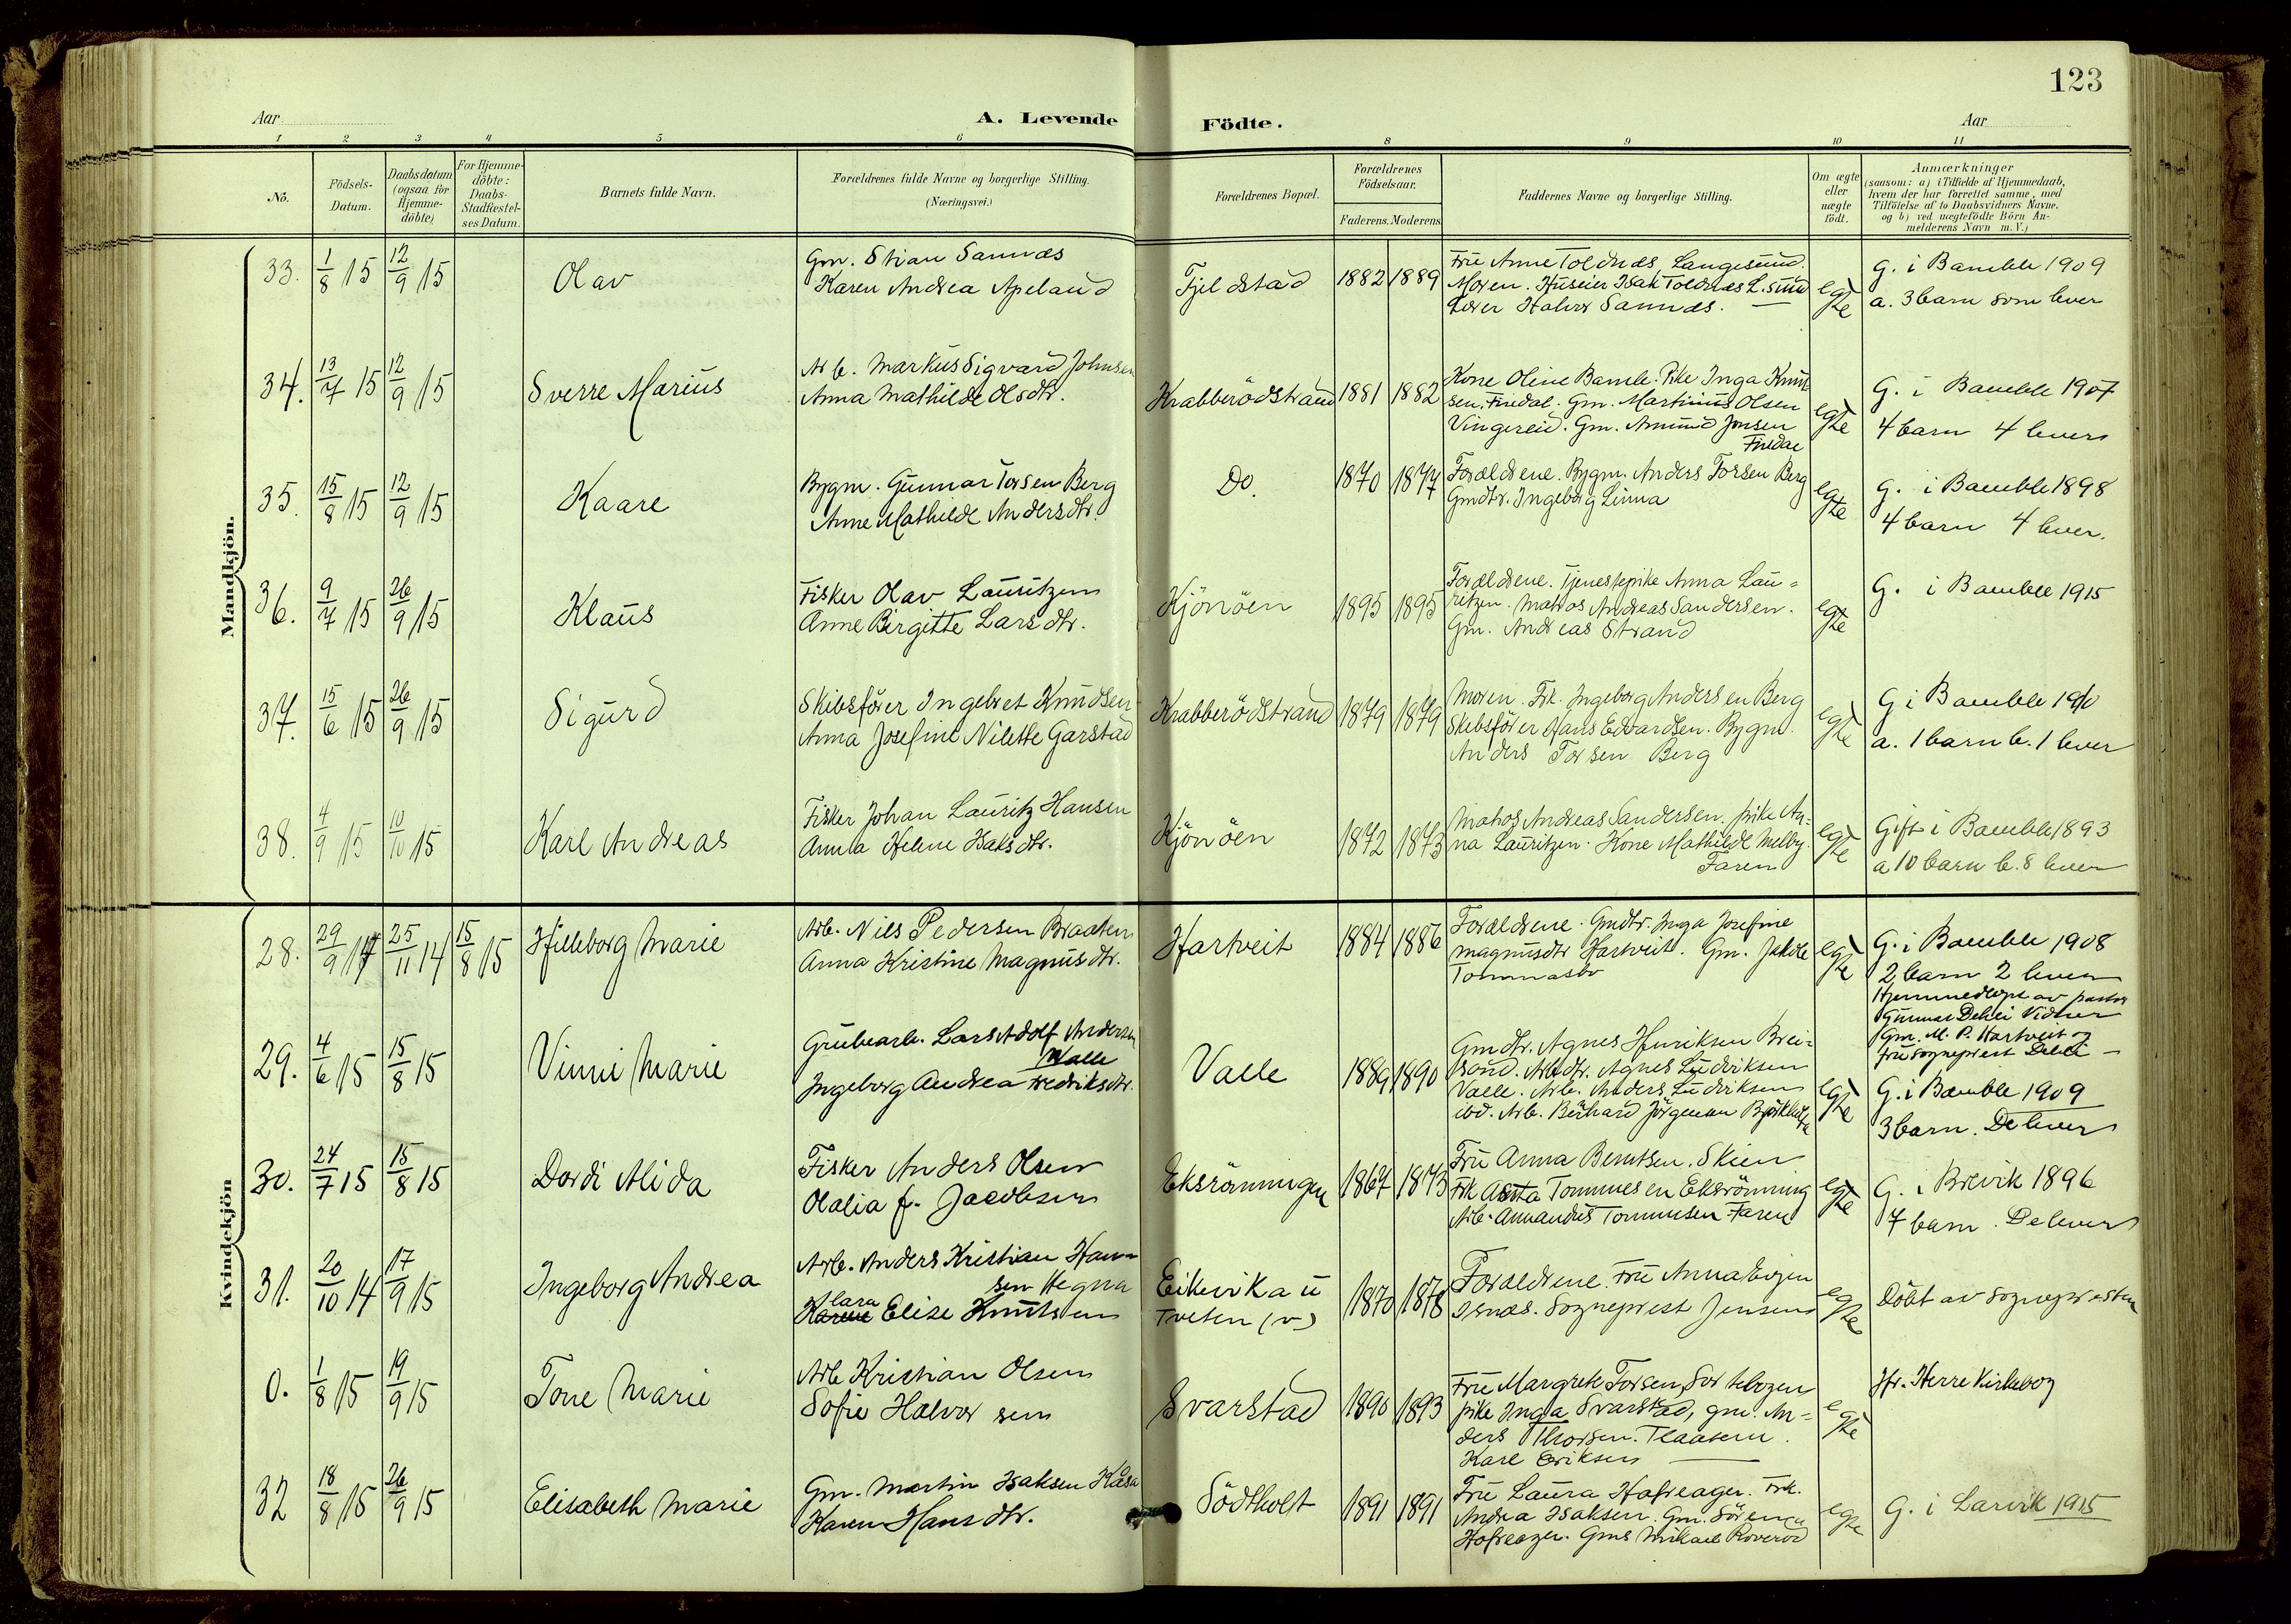 123
Aar
A. Levende
Födte.
Aar
1 2 3 4 5 6 8 9 10 11
No.
Födsels-
Datum.
Daabsdatum
(ogsaa for
Hjemme-
döbte)
For Hjemme-
döbte:
Daabs-
Stadfæstel-
ses Datum.
Barnets fulde Navn.
Forældrenes fulde Navne og borgerlige Stilling.
(Næringsvei.)
Forældrenes Bopæl.
Forældrenes
Födselsaar.
Faderens. Moderens
Faddernes Navne og borgerlige Stilling.
Om ægte
eller
uægte
födt.
Anmærkninger
(saasom: a) i Tilfælde af Hjemmedaab,
hvem der har forrettet samme, med
Tilföielse af to Daabsvidners Navne.
og b) ved uægtefödte Börn An-
melderens Navn m. V.)
Mandkjön.
33. 1/8 15 12/9 15
Olav
Gm. Stian Sannæs
Karen Andrea Apeland
Fjeldstad
1882 1889
Fru Anne Toldnæs Langesund.
Moren. Huseier Isak Toldnæs L.sund
Lærer Halvor Sannæs.
egte
G. i Bamble 1909
a. 3 barn som lever
34. 13/7 15 12/9 15
Sverre Marius
Arb. Markus Sigvard Johnsen
Anna Mathilde Olsdtr.
Krabberödstrand
1881 1882
Kone Oline Bamle. Pike Inga Knut-
sen, Findal. Gm. Martinius Olsen
Vingereid. Gm. Amund Jonsen
Findal
egte
G. i Bamble 1907
4 barn 4 lever
35. 15/8 15 12/9 15
Kaare
Bygm. Gunnar Torsen Berg
Anne Mathilde Andersdtr.
Do.
1870 1877
Forældrene. Bygm. Anders Torsen Berg
Gmdtr. Ingeborg Linna
egte
G. i Bamble 1898
4 barn 4 lever.
36. 9/7 15 26/9 15
Klaus
Fisker Olav Lauritzen
Anne Birgitte Larsdtr.
Kjönöen
1895 1895
Forældrene. Tjenestepike Anna Lau-
ritzen. Matros Andreas Sandersen.
Gm. Andreas Strand
egte
G. i Bamble 1915
37. 15/6 15 26/9 15
Sigurd
Skibsförer Ingebret Knudsen
Anna Josefine Nilette Garstad
Krabberödstrand
1879 1879
Moren. Frk. Ingeborg Andersen Berg
Skibsförer Hans Edvardsen. Bygm.
Anders Torsen Berg
egte
G i Bamble 1910
a. 1 barn b. 1 lever
38. 4/9 15 10/10 15
Karl Andreas
Fisker Johan Lauritz Hansen
Anna Helene Isaksdtr.
Kjönöen
1872 1873
Matros Andreas Sandersen. pike An-
na Lauritzen. Kone Mathilde Melby.
Faren
egte
Gift i Bamble 1893
a 10 barn b. 8 lever
Kvindekjön
28. 29/9 14 25/11 14 15/8 15
Hilleborg Marie
Arb. Nils Pedersen Braaten
Anna Kristine Magnusdtr.
Hartveit
1884 1886
Forældrene. Gmdtr. Inga Josefine
Magnusdtr Hartveit. Gm. Jakob
Tommasbo
egte
G. i Bamble 1908
2 barn 2 lever
Hjemmedöpt av pastor
Gunnar Dehli Vidner
Gm. M. P. Hartveit og
fru sogneprest Dehli
29. 4/6 15 15/8 15
Vinni Marie
Grubearb. Lars Adolf Andersen
Valle
Ingeborg Andrea Fredriksdtr.
Valle
1889 1890
Gmdtr. Agnes Henriksen Brei-
sund. Arbdtr. Agnes Ludviksen
Valle. Arb. Anders Ludviksen
ibd. Arb. Bernhard Jörgensen
egte
G. i Bamble 1909
3 barn. De lever
30. 24/7 15 15/8 15
Dordi Alida
Fisker Anders Olsen
Olalia f. Jacobsen
Eksrönningen
1867 1873
Fru Anna Berntsen. Skien
Frk Asta Tommesen Eksrönning
Arb. Amandus Tommesen Faren
egte
G. i Brevik 1896
7 barn. De lever
31. 20/10 14 17/9 15
Ingeborg Andrea
Arb. Anders Kristian Han-
sen Hegna
Klara
Karen Elise Knutsen
Eikevika u
Tveten (v)
1870 1878
Forældrene. Fru Anna
Sogneprest Jensen
egte
Döbt av sognepresten
0. 1/8 15 19/9 15
Tone Marie
Arb Kristian Olsen
Sofie Halvorsen
Svarstad
1890 1893
Fru Margrete Torsen, Sortebogen
pike Inga Svarstad, gm. An-
ders Thorsen. Tlaatern.
Karl Eriksen
egte
Jfr. Herre Kirkebog
32 18/8 15 26/9 15
Elisabeth Marie
Gm. Martin Isaksen Kåsa
Karen Hansdtr.
Södtholt
1891 1891
Fru Laura Hafreager. Frk.
Andrea Isaksen. Gm. Sören
Hafreager. Gms Mikael Röveröd
egte
G. i Larvik 1915